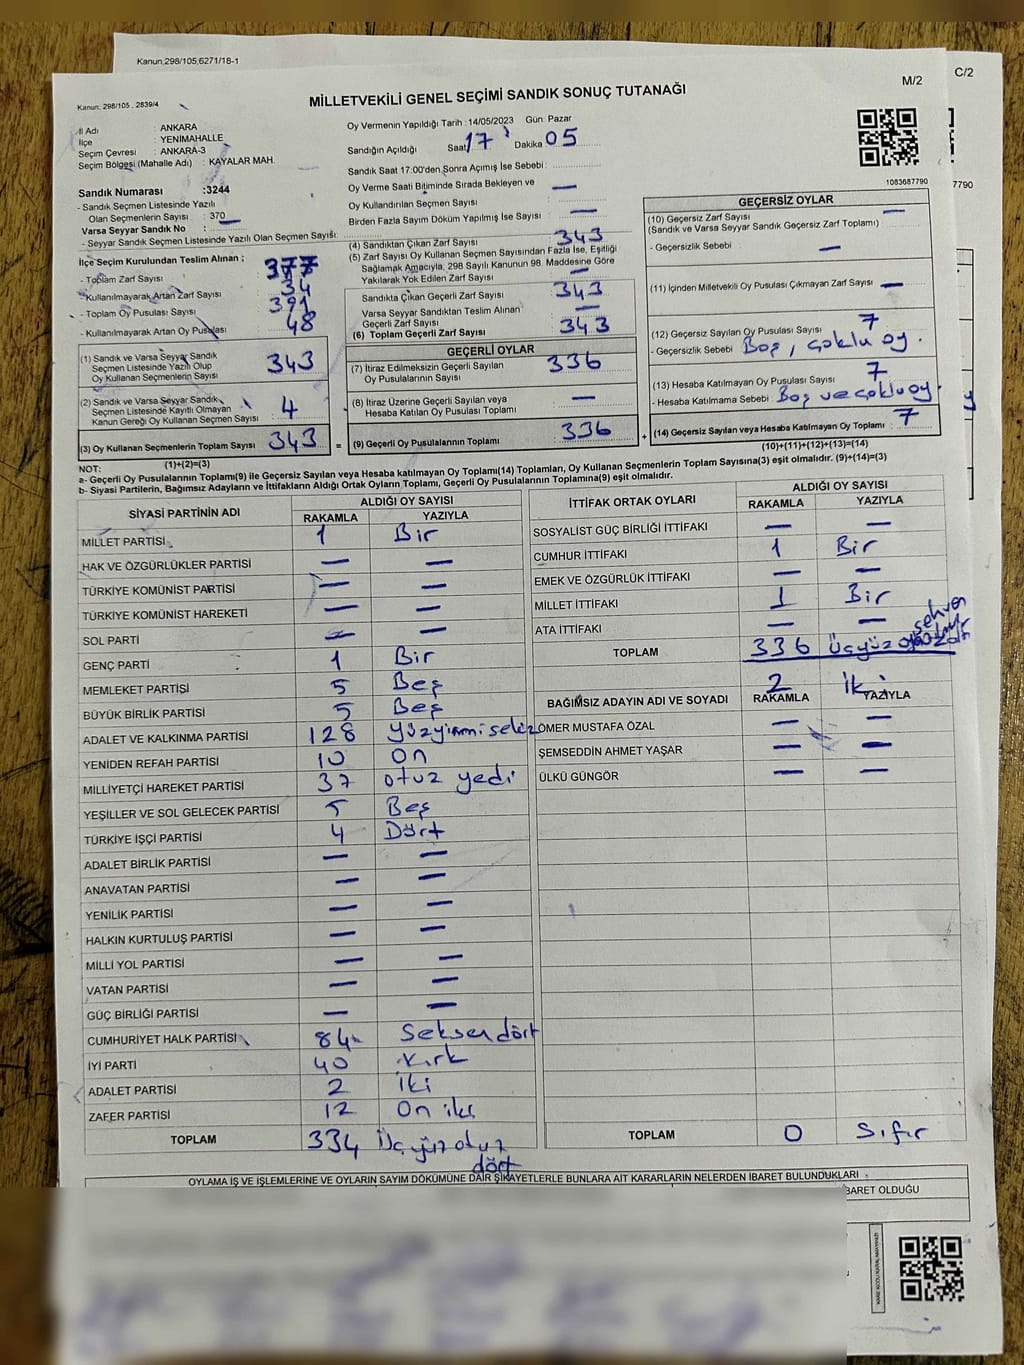 Kanun,298/105,6271/18-1
C/2
Kanun: 298/105 , 2839/4
MİLLETVEKİLİ GENEL SEÇİMİ SANDIK SONUÇ TUTANAĞI
M/2
İl Adı : ANKARA
İlçe : YENİMAHALLE
Seçim Çevresi : ANKARA-3
Seçim Bölgesi (Mahalle Adı) : KAYALAR MAH.
Sandık Numarası :3244
- Sandık Seçmen Listesinde Yazılı
Olan Seçmenlerin Sayısı : 370
Varsa Seyyar Sandık No : —
- Seyyar Sandık Seçmen Listesinde Yazılı Olan Seçmen Sayısı:
İlçe Seçim Kurulundan Teslim Alınan ;
- Toplam Zarf Sayısı 377
- Kullanılmayarak Artan Zarf Sayısı 34
- Toplam Oy Pusulası Sayısı 391
- Kullanılmayarak Artan Oy Pusulası 48
(1) Sandık ve Varsa Seyyar Sandık
Seçmen Listesinde Yazılı Olup
Oy Kullanan Seçmenlerin Sayısı 343
(2) Sandık ve Varsa Seyyar Sandık
Seçmen Listesinde Kayıtlı Olmayan
Kanun Gereği Oy Kullanan Seçmen Sayısı 4
(3) Oy Kullanan Seçmenlerin Toplam Sayısı 343 =
(1)+(2)=(3)
Oy Vermenin Yapıldığı Tarih : 14/05/2023 Gün: Pazar
Sandığın Açıldığı Saat 17 Dakika 05
Sandık Saat 17:00'den Sonra Açımış İse Sebebi:
Oy Verme Saati Bitiminde Sırada Bekleyen ve —
Oy Kullandırılan Seçmen Sayısı
Birden Fazla Sayım Döküm Yapılmış İse Sayısı —
(4) Sandıktan Çıkan Zarf Sayısı 343
(5) Zarf Sayısı Oy Kullanan Seçmen Sayısından Fazla İse, Eşitliği
Sağlamak Amacıyla, 298 Sayılı Kanunun 98. Maddesine Göre
Yakılarak Yok Edilen Zarf Sayısı —
Sandıkta Çıkan Geçerli Zarf Sayısı 343
Varsa Seyyar Sandıktan Teslim Alınan
Geçerli Zarf Sayısı —
(6) Toplam Geçerli Zarf Sayısı 343
GEÇERLİ OYLAR
(7) İtiraz Edilmeksizin Geçerli Sayılan
Oy Pusulalarının Sayısı 336
(8) İtiraz Üzerine Geçerli Sayılan veya
Hesaba Katılan Oy Pusulası Toplamı —
(9) Geçerli Oy Pusulalarının Toplamı 336 +
1083687790
7790
GEÇERSİZ OYLAR
(10) Geçersiz Zarf Sayısı —
(Sandık ve Varsa Seyyar Sandık Geçersiz Zarf Toplamı)
- Geçersizlik Sebebi : —
(11) İçinden Milletvekili Oy Pusulası Çıkmayan Zarf Sayısı —
(12) Geçersiz Sayılan Oy Pusulası Sayısı 7
- Geçersizlik Sebebi Boş, çoklu oy.
(13) Hesaba Katılmayan Oy Pusulası Sayısı 7
- Hesaba Katılmama Sebebi : Boş ve çoklu oy
(14) Geçersiz Sayılan veya Hesaba Katılmayan Oy Toplamı : 7
(10)+(11)+(12)+(13)=(14)
NOT:
a- Geçerli Oy Pusulalarının Toplamı(9) ile Geçersiz Sayılan veya Hesaba katılmayan Oy Toplamı(14) Toplamları, Oy Kullanan Seçmenlerin Toplam Sayısına(3) eşit olmalıdır. (9)+(14)=(3)
b- Siyasi Partilerin, Bağımsız Adayların ve İttifakların Aldığı Ortak Oyların Toplamı, Geçerli Oy Pusulalarının Toplamına(9) eşit olmalıdır.
SİYASİ PARTİNİN ADI ALDIĞI OY SAYISI
RAKAMLA YAZIYLA
MİLLET PARTİSİ 1 Bir
HAK VE ÖZGÜRLÜKLER PARTİSİ — —
TÜRKİYE KOMÜNİST PARTİSİ — —
TÜRKİYE KOMÜNİST HAREKETİ — —
SOL PARTİ — —
GENÇ PARTİ 1 Bir
MEMLEKET PARTİSİ 5 Beş
BÜYÜK BİRLİK PARTİSİ 5 Beş
ADALET VE KALKINMA PARTİSİ 128 Yüzyirmisekiz
YENİDEN REFAH PARTİSİ 10 On
MİLLİYETÇİ HAREKET PARTİSİ 37 otuz yedi
YEŞİLLER VE SOL GELECEK PARTİSİ 5 Beş
TÜRKİYE İŞÇİ PARTİSİ 4 Dört
ADALET BİRLİK PARTİSİ — —
ANAVATAN PARTİSİ — —
YENİLİK PARTİSİ — —
HALKIN KURTULUŞ PARTİSİ — —
MİLLİ YOL PARTİSİ — —
VATAN PARTİSİ — —
GÜÇ BİRLİĞİ PARTİSİ — —
CUMHURİYET HALK PARTİSİ 84 Seksendört
İYİ PARTİ 40 Kırk
ADALET PARTİSİ 2 İki
ZAFER PARTİSİ 12 On iki
TOPLAM 334 Üçyüz otuz
dört
İTTİFAK ORTAK OYLARI ALDIĞI OY SAYISI
RAKAMLA YAZIYLA
SOSYALİST GÜÇ BİRLİĞİ İTTİFAKI — —
CUMHUR İTTİFAKI 1 Bir
EMEK VE ÖZGÜRLÜK İTTİFAKI — —
MİLLET İTTİFAKI 1 Bir
ATA İTTİFAKI — —
sehven
TOPLAM 336 Üçyüz
2 İki
BAĞIMSIZ ADAYIN ADI VE SOYADI RAKAMLA YAZIYLA
ÖMER MUSTAFA ÖZAL — —
ŞEMSEDDİN AHMET YAŞAR — —
ÜLKÜ GÜNGÖR — —
TOPLAM 0 Sıfır
OYLAMA İŞ VE İŞLEMLERİNE VE OYLARIN SAYIM DÖKÜMÜNE DAİR ŞİKAYETLERLE BUNLARA AİT KARARLARIN NELERDEN İBARET BULUNDUKLARI
BARET OLDUĞU